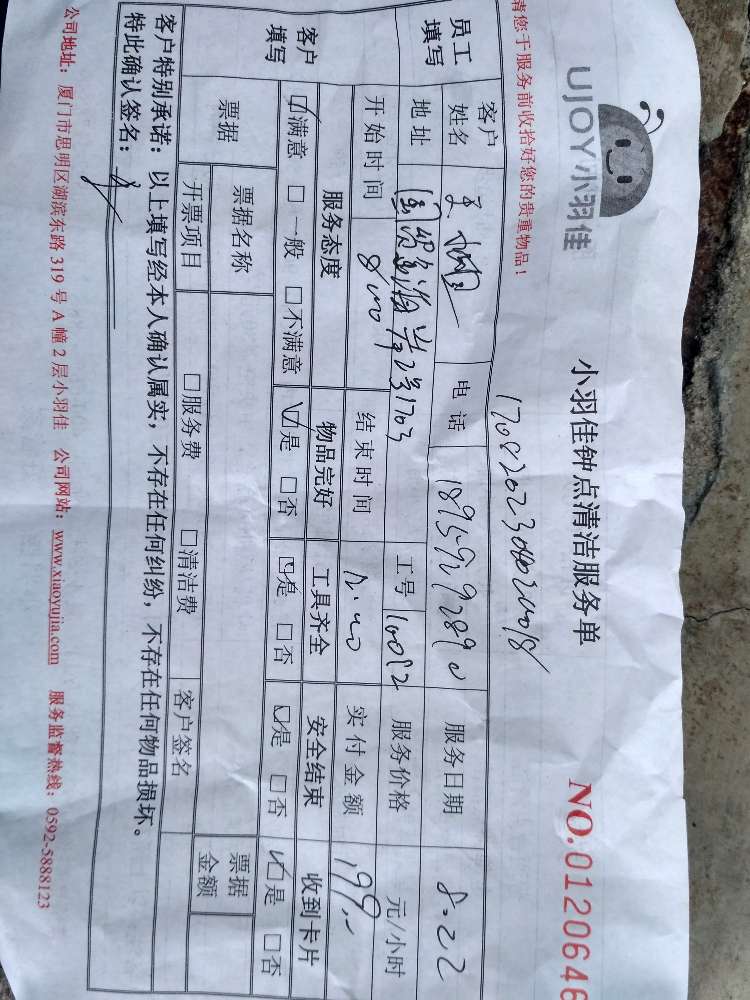 UJOY小羽佳
小羽佳钟点清洁服务单
NO.0120646
请您于服务前收拾好您的贵重物品！
员工填写
客户姓名 王 电话 服务日期 8.22
地址 国贸金海岸 1703 工号 服务价格 元/小时
开始时间 结束时间 实付金额 199.-
客户填写
服务态度 物品完好 工具齐全 安全结束 收到卡片
☑满意 □一般 □不满意 ☑是 □否 ☑是 □否 ☑是 □否 ☑是 □否
票据 票据名称 票据金额
开票项目 □服务费 □清洁费 客户签名
客户特别承诺：以上填写经本人确认属实，不存在任何纠纷，不存在任何物品损坏。
特此确认签名：
公司地址：厦门市思明区湖滨东路 319 号 A 幢 2 层小羽佳 公司网站：www.xiaoyujia.com 服务监督热线：0592-5888123